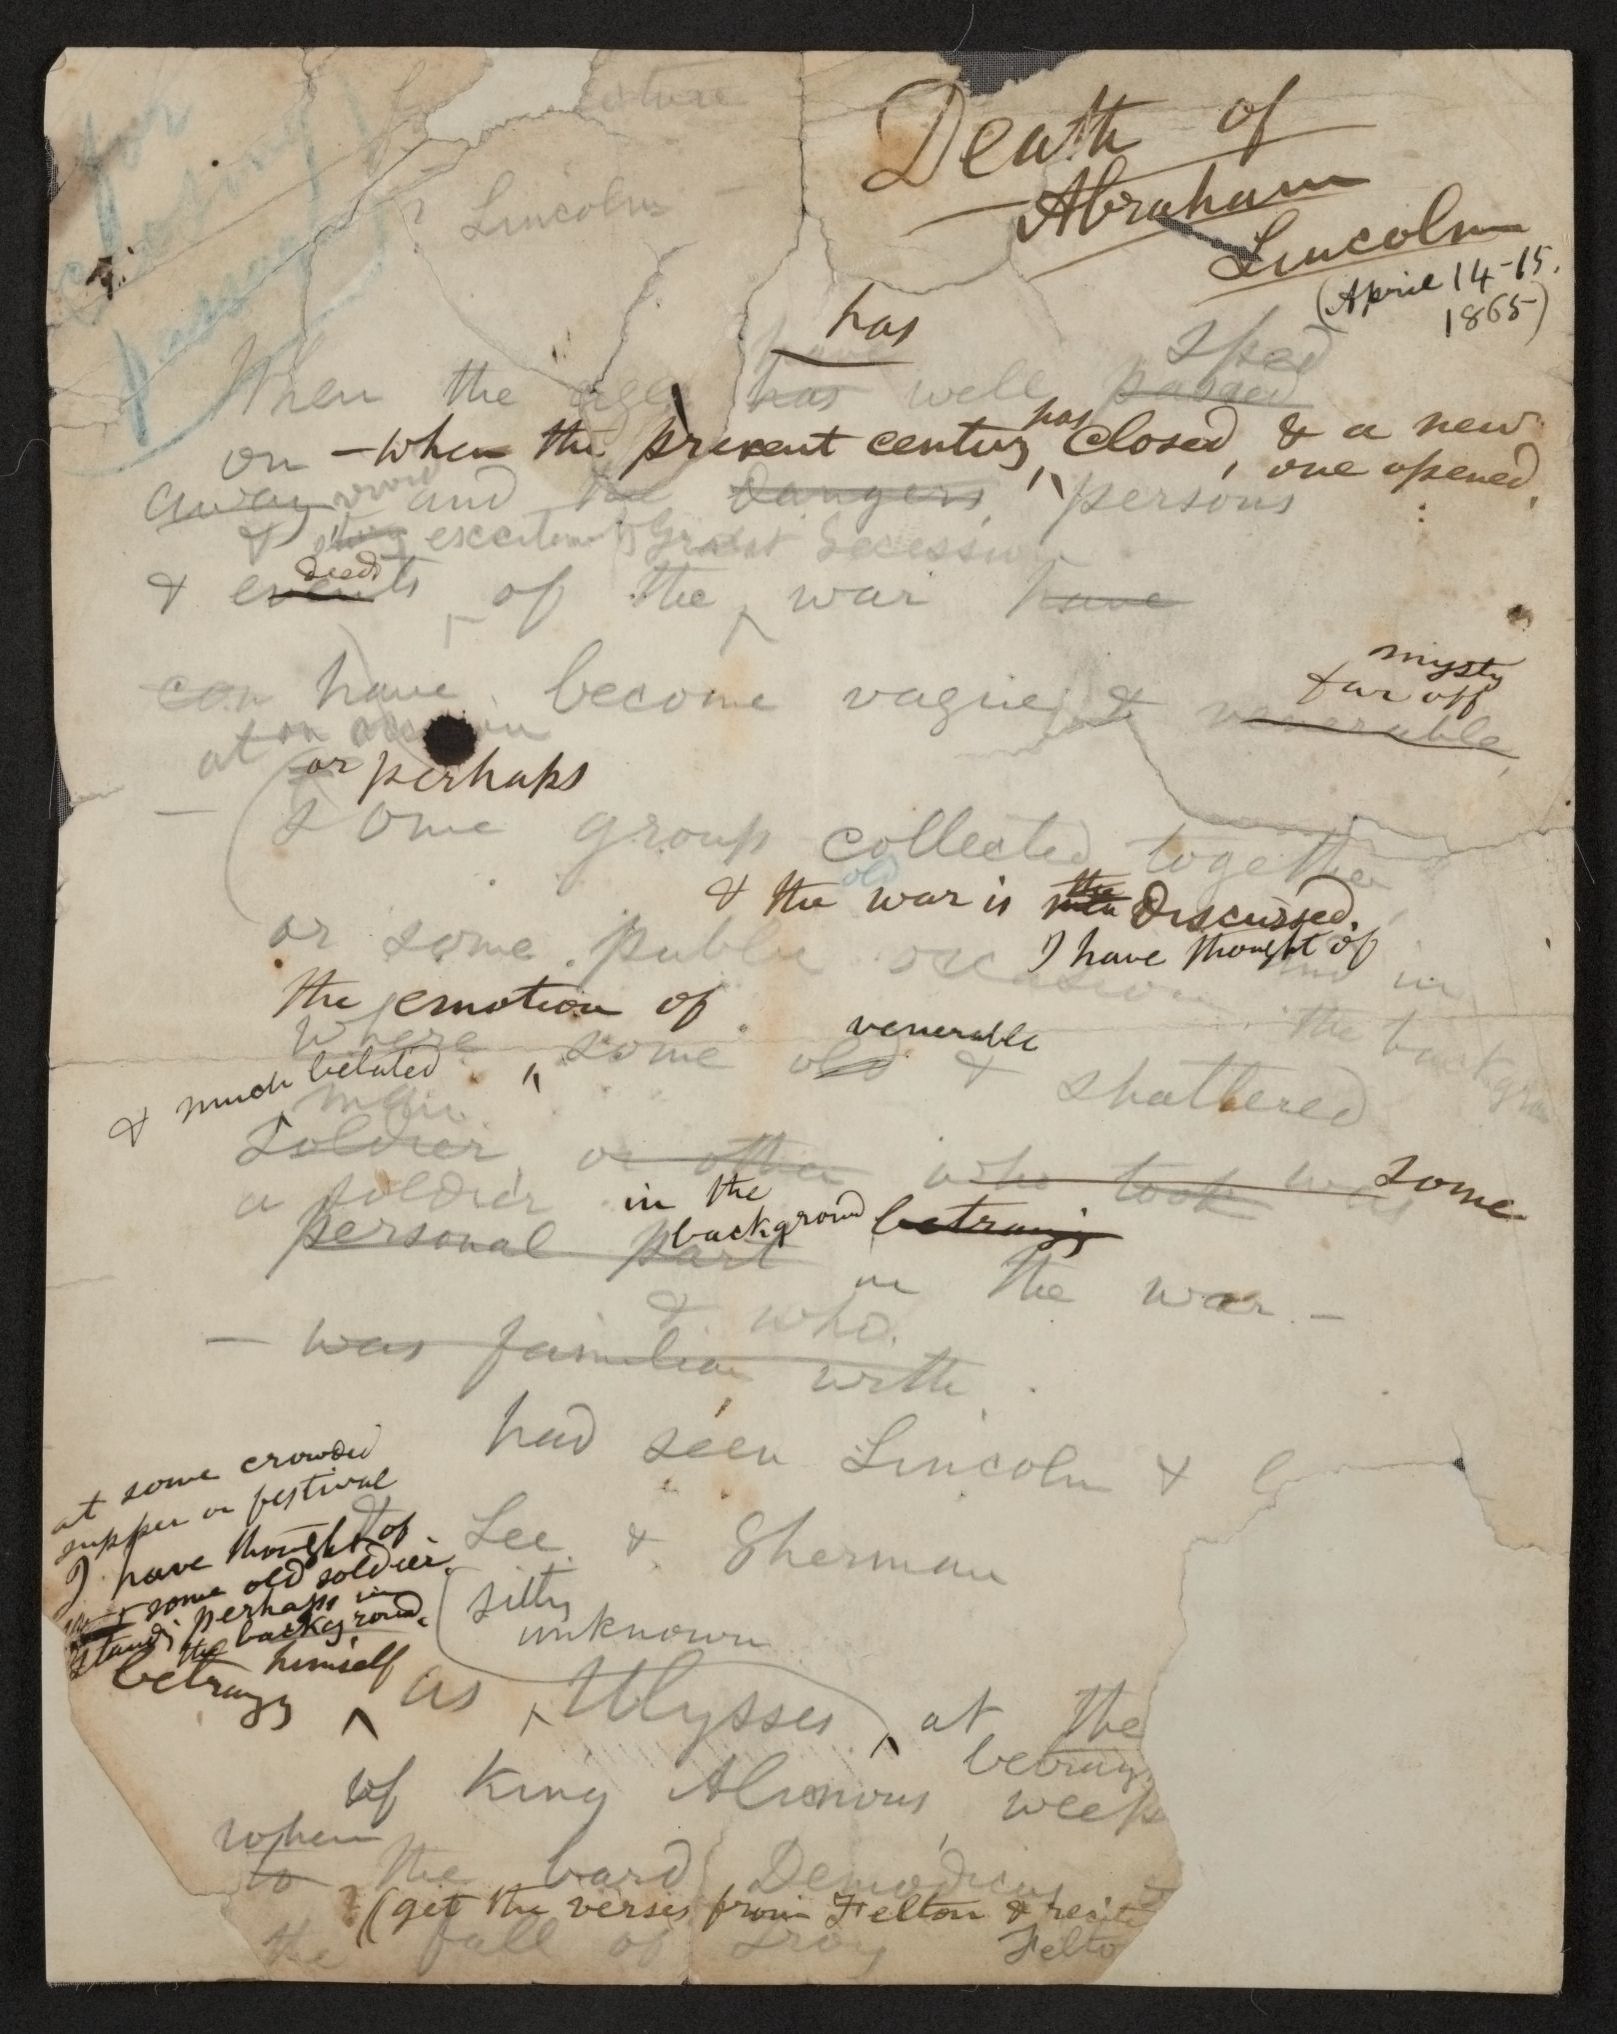 for
passage
Lecture
Lincoln
Death of
Abraham
Lincoln
(April 14-15.
1865)
has
have sped
When the age has well passed
on – when the present century has closed, & a new
one opened,
away and the dangers, persons
& strong excitement of Great Secession
deeds
& events of the war have
mysty
& far off
can have become vague & venerable,
at on occasion
or perhaps
– (some group collected together
old
& the war is then the discussed.
or some public occasion and in
I have thought of
the emotion of
the backgroun
where some old venerable & shattered
& much belated
man
soldier, or other who took was some
a soldier in the
background betrays
personal part
in the war –
& who
– was familiar with
had seen Lincoln &
& Lee & Sherman
at some crowded
supper or festival
I have thought of
some old soldier
standg perhaps in
the background.
betrays himself
(sittg
unknown
as Ulysses, at the
betray
of King Alcinous, weep
when
to the bard Demodicus
(get the verses from Felton & recite
the fall of Troy Felto